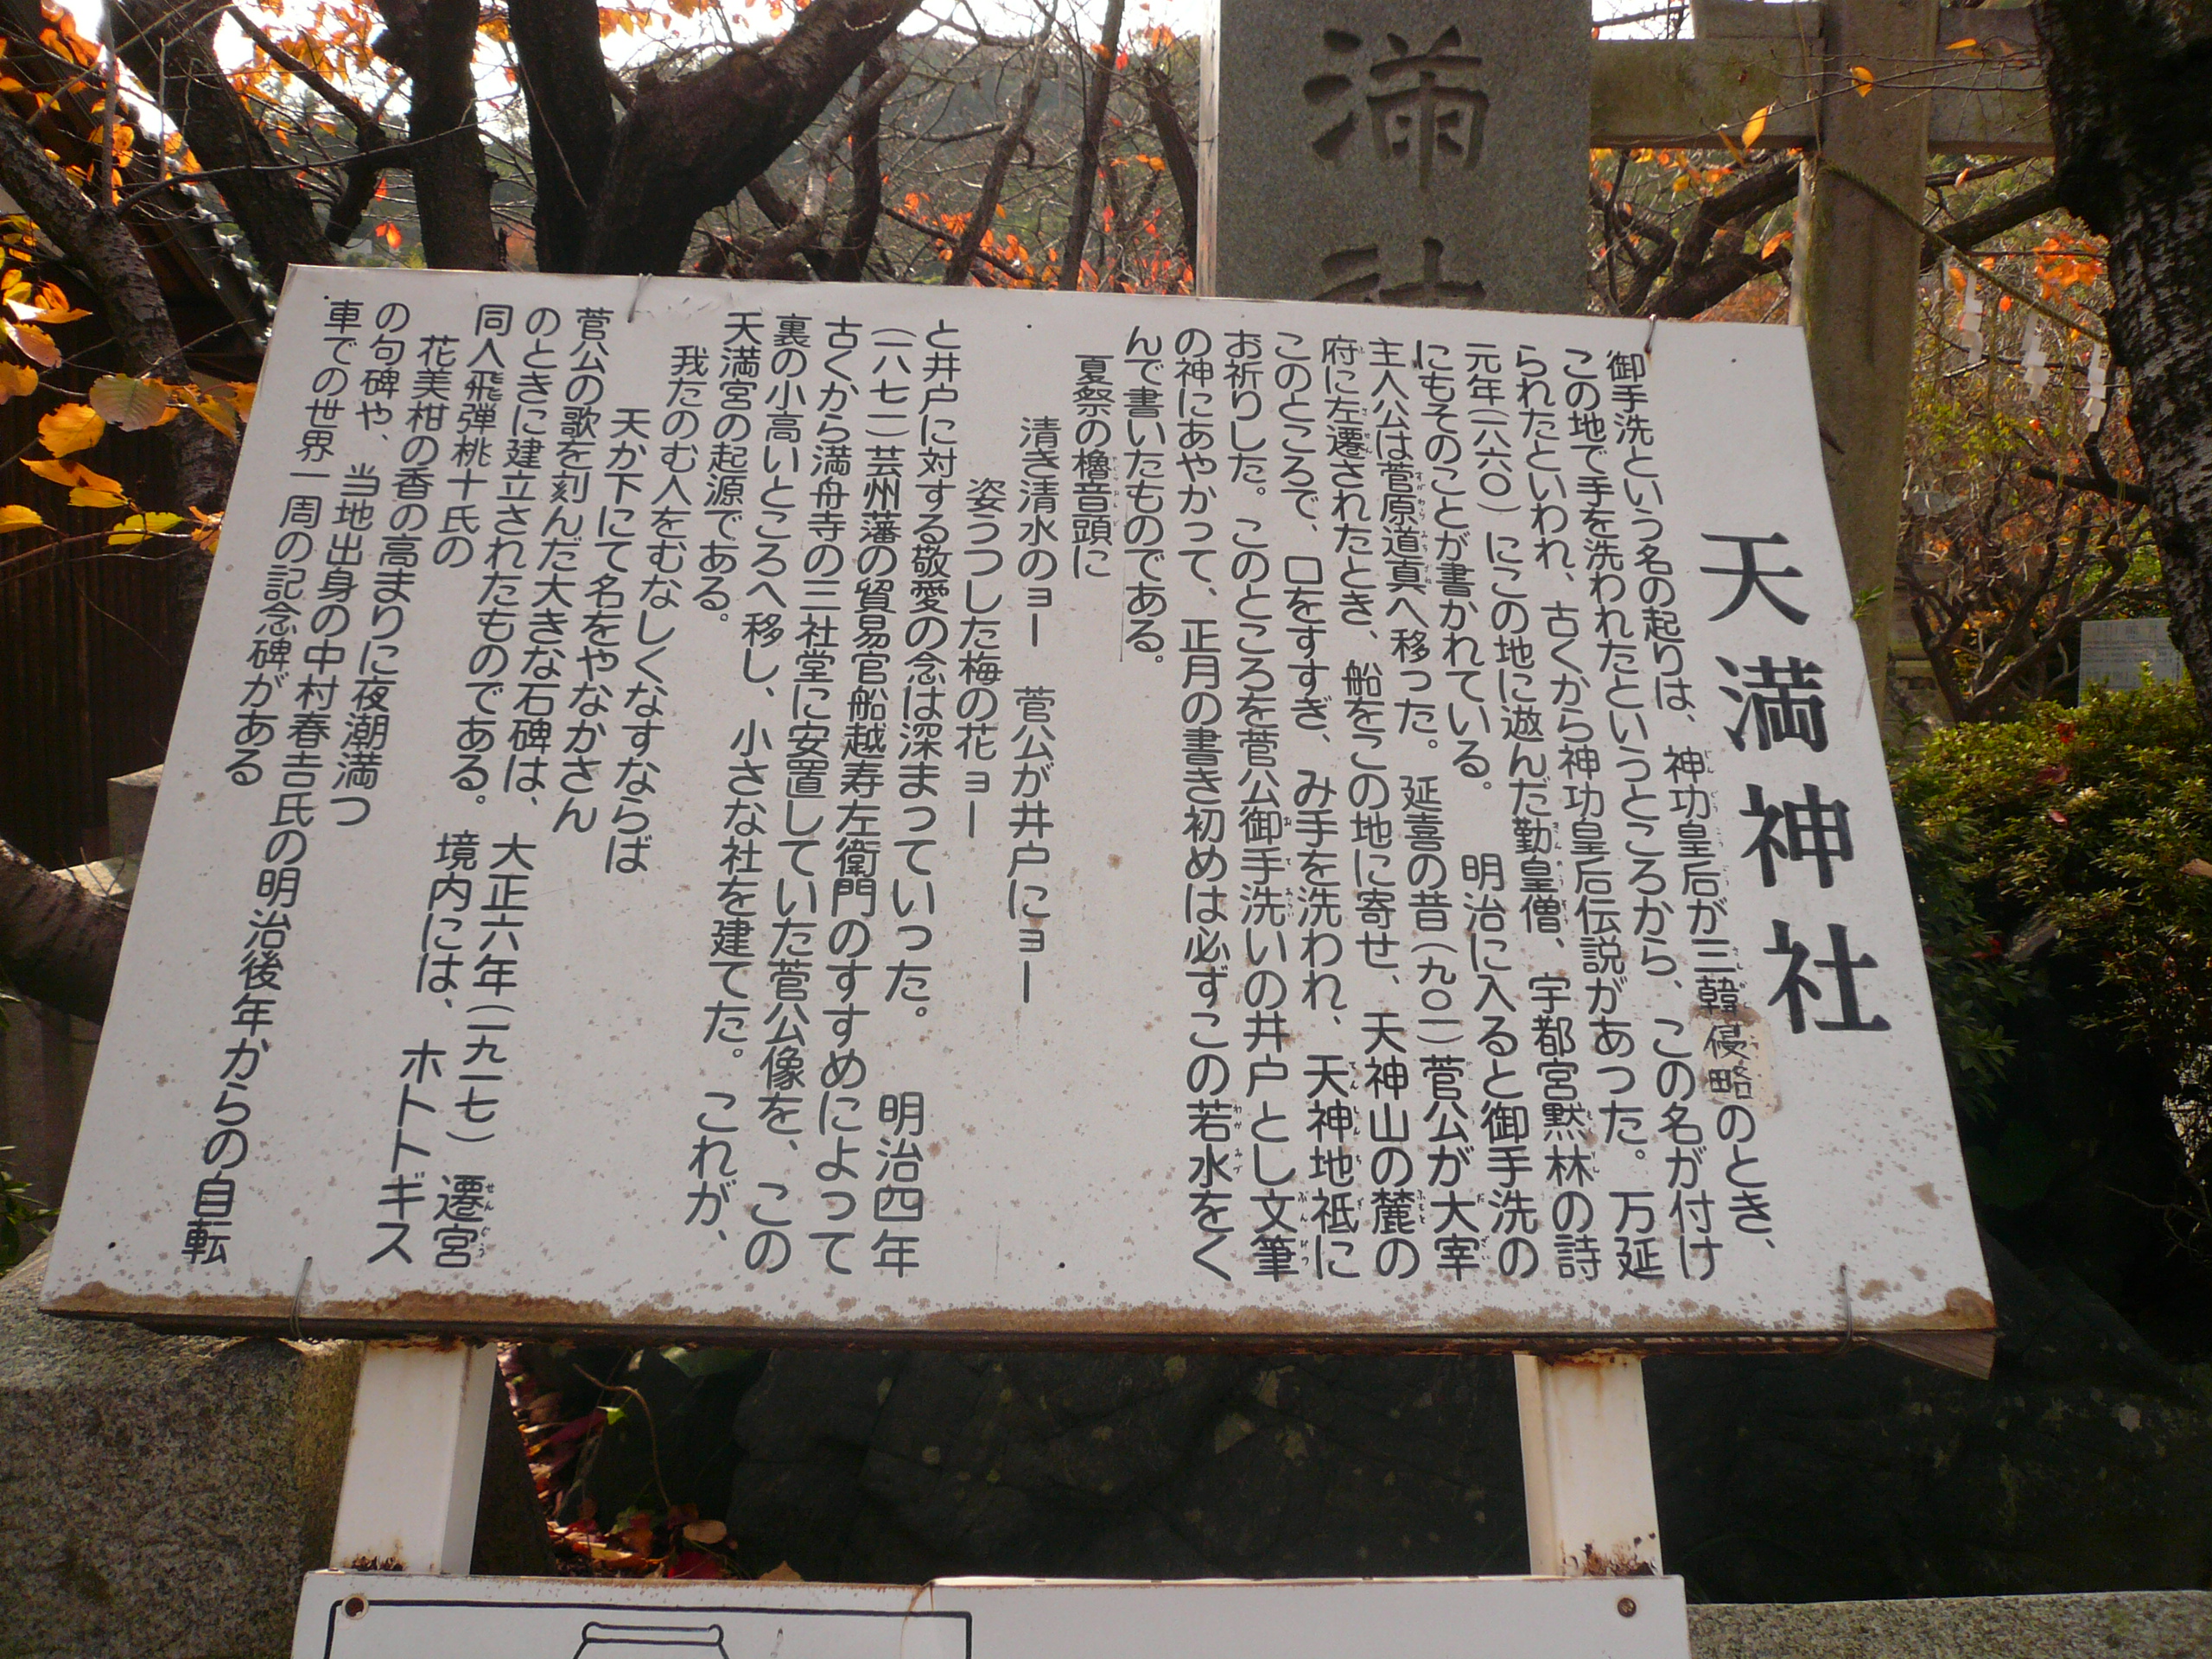 満
社
天満神社
御手洗という名の起りは、神功皇后が三韓侵略のとき、
この地で手を洗われたというところから、この名が付け
られたといわれ、古くから神功皇后伝説があった。万延
元年(一八六〇)にこの地に遊んだ勤皇僧、宇都宮黙林の詩
にもそのことが書かれている。 明治に入ると御手洗の
主人公は菅原道真へ移った。延喜の昔(九〇一)菅公が大宰
府に左遷されたとき、船をこの地に寄せ、天神山の麓の
このところで、口をすすぎ、み手を洗われ、天神地祇に
お祈りした。このところを菅公御手洗いの井戸とし文筆
の神にあやかって、正月の書き初めは必ずこの若水をく
んで書いたものである。
夏祭の櫓音頭に
清き清水のヨー 菅公が井戸にヨー
姿うつした梅の花ヨー
と井戸に対する敬愛の念は深まっていった。 明治四年
(一八七一)芸州藩の貿易官船越寿左衛門のすすめによって
古くから満舟寺の三社堂に安置していた菅公像を、この
裏の小高いところへ移し、小さな社を建てた。これが、
天満宮の起源である。
我たのむ人をむなしくなすならば
天か下にて名をやなかさん
菅公の歌を刻んだ大きな石碑は、大正六年(一九一七)遷宮
のときに建立されたものである。境内には、ホトトギス
同人飛弾桃十氏の
花美柑の香の高まりに夜潮満つ
の句碑や、当地出身の中村春吉氏の明治後年からの自転
車での世界一周の記念碑がある